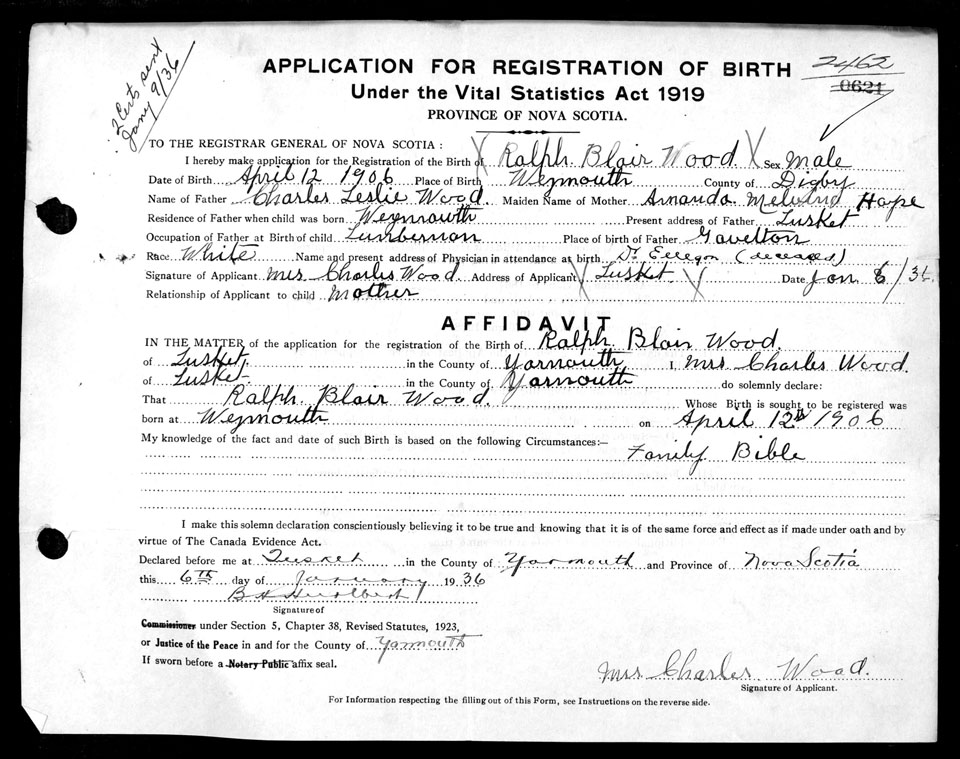 2 Certs sent
Jany 9/36
APPLICATION FOR REGISTRATION OF BIRTH
2462
0621
Under the Vital Statistics Act 1919
PROVINCE OF NOVA SCOTIA.
TO THE REGISTRAR GENERAL OF NOVA SCOTIA :
I hereby make application for the Registration of the Birth of Ralph Blair Wood Sex Male
Date of Birth April 12 1906 Place of Birth Weymouth County of Digby
Name of Father Charles Leslie Wood. Maiden Name of Mother Amanda Hope
Residence of Father when child was born Weymouth Present address of Father Tusket
Occupation of Father at Birth of child Lumberman Place of birth of Father Gavelton
Race White Name and present address of Physician in attendance at birth Dr (deceased)
Signature of Applicant Mrs Charles Wood Address of Applicant Tusket Date Jan 6/36
Relationship of Applicant to child Mother
AFFIDAVIT
IN THE MATTER of the application for the registration of the Birth of Ralph Blair Wood.
of Tusket, in the County of Yarmouth I, Mrs Charles Wood.
of Tusket in the County of Yarmouth do solemnly declare:
That Ralph Blair Wood. Whose Birth is sought to be registered was
born at Weymouth on April 12th 1906
My knowledge of the fact and date of such Birth is based on the following Circumstances:—
Family Bible
I make this solemn declaration conscientiously believing it to be true and knowing that it is of the same force and effect as if made under oath and by
virtue of The Canada Evidence Act.
Declared before me at Tusket in the County of Yarmouth and Province of Nova Scotia
this 6th day of January 1936
B H Hurlbert
Signature of
Commissioner under Section 5, Chapter 38, Revised Statutes, 1923,
or Justice of the Peace in and for the County of Yarmouth
If sworn before a Notary Public affix seal.
Mrs Charles Wood.
Signature of Applicant.
For Information respecting the filling out of this Form, see Instructions on the reverse side.